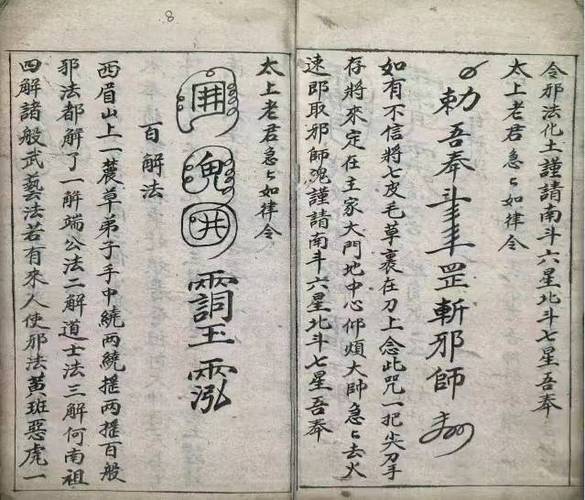 8
令邪法化土謹請南斗六星北斗七星吾奉
太上老君急〻如律令
勅吾奉斗罡斬邪師
如有不信將七皮毛草裹在刀上念此咒一把尖刀手
存將來定在主家大門地中心仰煩大帥急〻去火
速即取邪師魂謹請南斗六星北斗七星吾奉
太上老君急〻如律令
魂井玉
百解法
西眉山上一農草弟子手中繞兩繞搓兩搓百般
邪法都解了一解端公法二解道士法三解何南祖
四解諸般武藝法若有來人使邪法黃班惡虎一